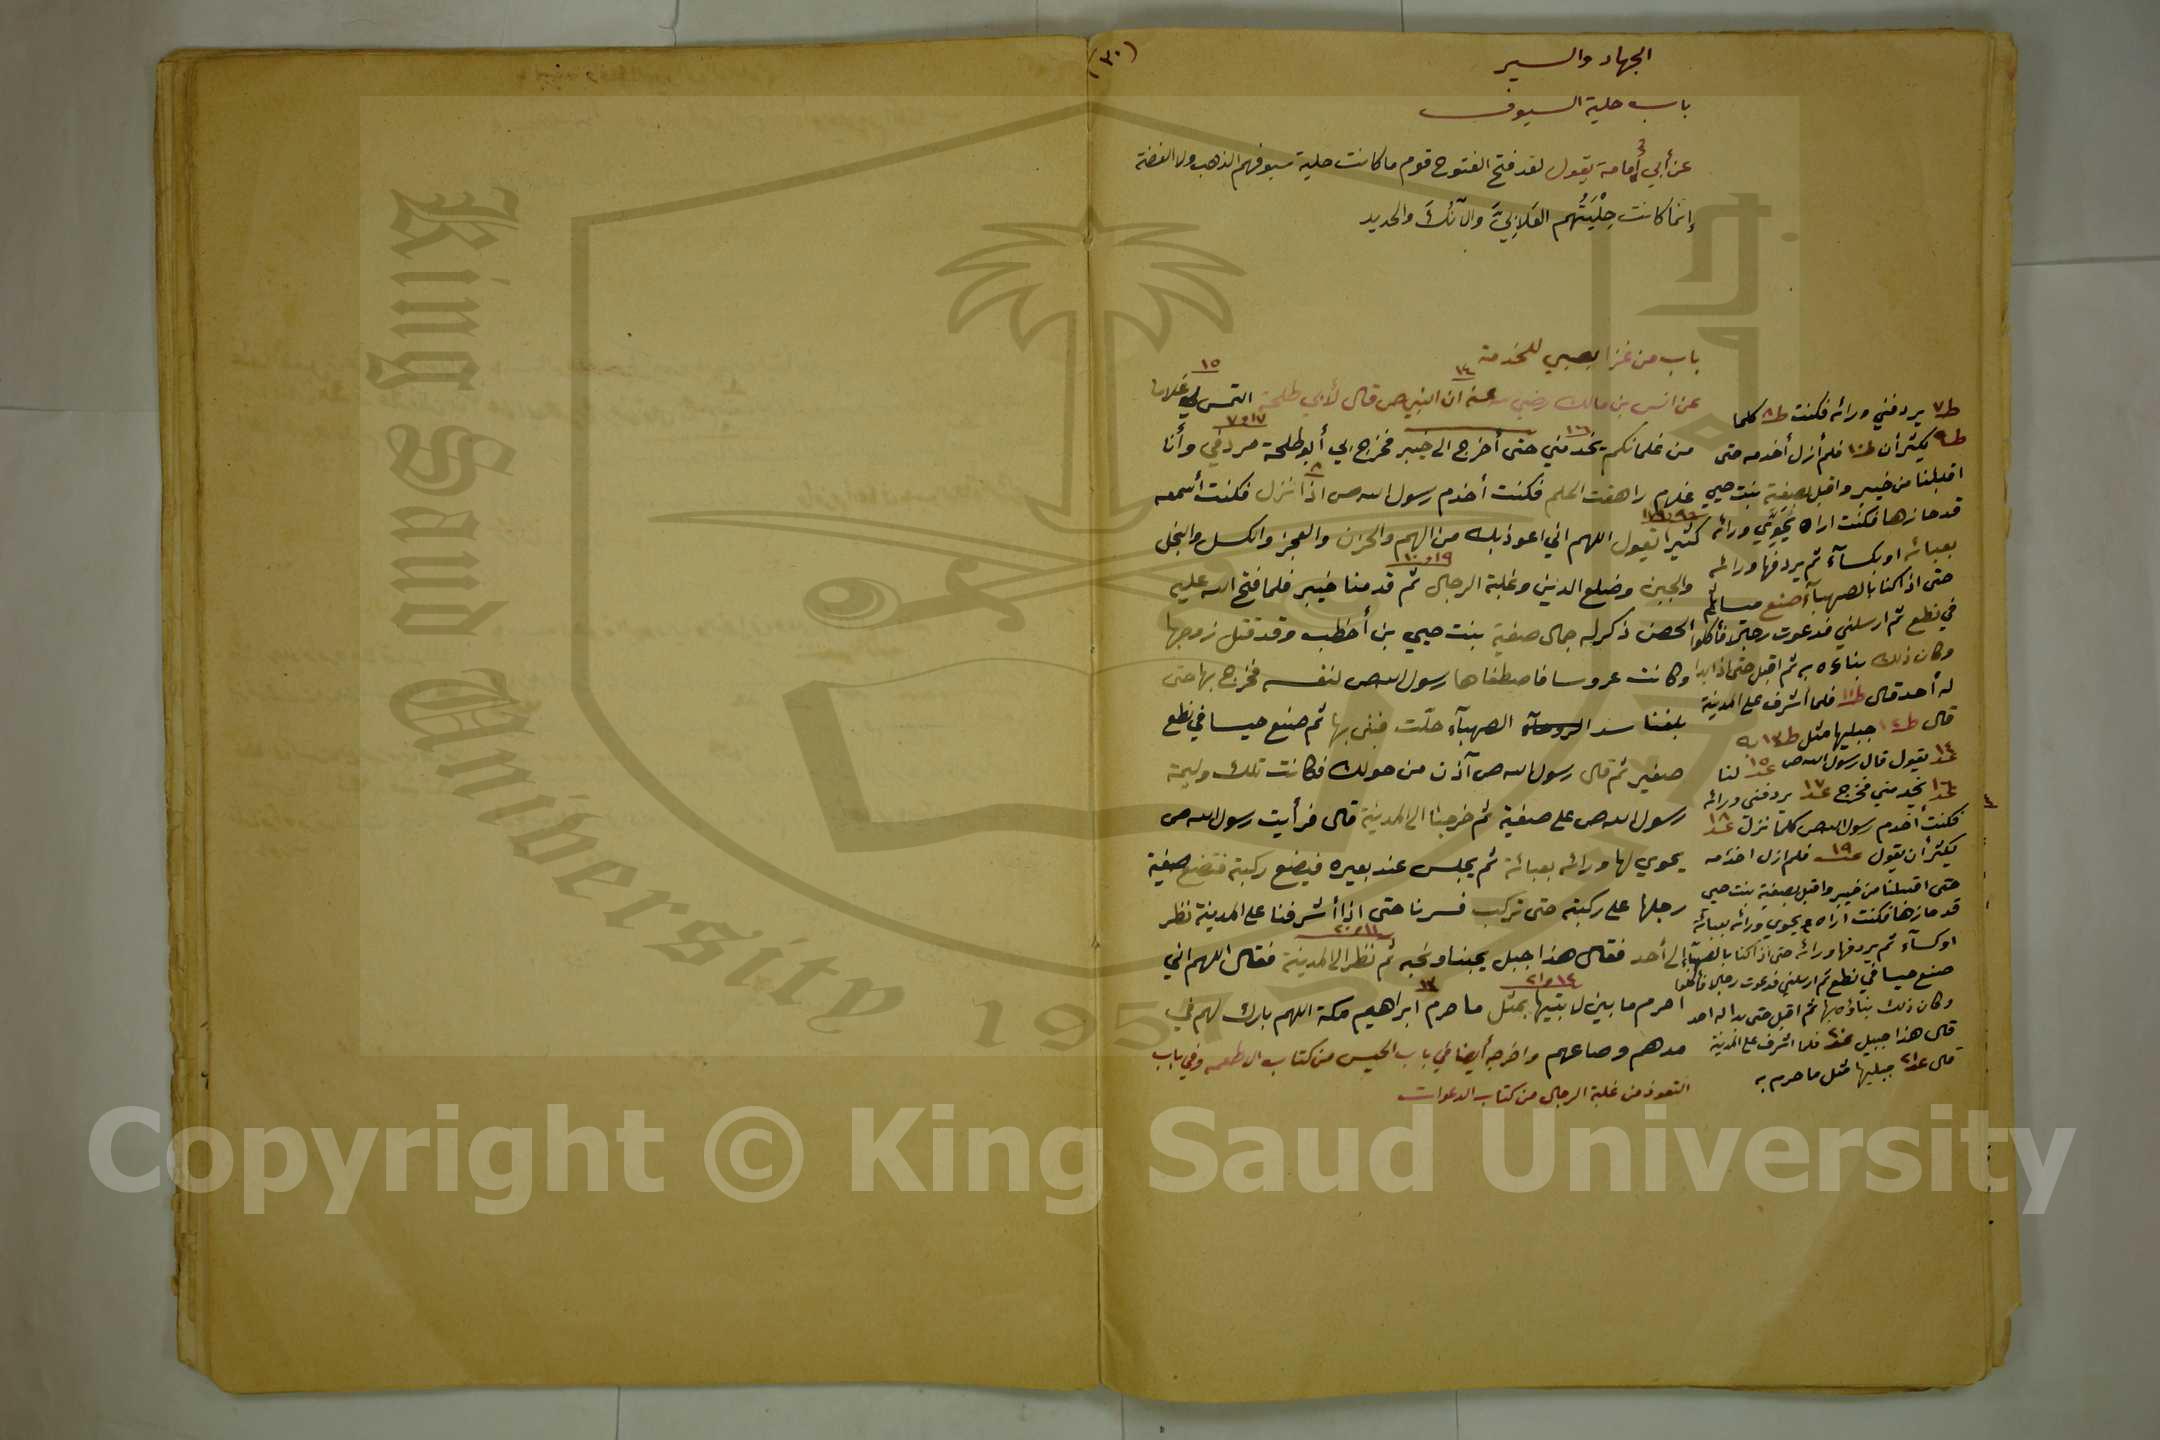 (٣٠)
الجهاد والسير
باب حلية السيوف
عن أبي أمامة يقول لقد فتح الفتوح قوم ما كانت حلية سيوفهم الذهب ولا الفضة
إنما كانت حِلْيَتُهم العَلابِيَّ والآنُكَ والحديد
باب من غزا بصبي للخدمة
عن انس بن مالك رضي الله عنه ان النبي ص قال لأبي طلحة التمس لي غلاما
من غلمانكم يخدمني حتى أخرج الى خيبر فخرج بي أبو طلحة مردفي وأنا
غلام راهقت الحلم فكنت أخدم رسول الله ص اذا نزل فكنت أسمعه
كثيرا يقول اللهم اني اعوذ بك من الهم والحزن والعجز والكسل والبخل
والجبن وضلع الدين وغلبة الرجال ثم قدمنا خيبر فلما فتح الله عليه
الحصن ذكر له جمال صفية بنت حيي بن أخطب وقد قتل زوجها
وكانت عروسا فاصطفاها رسول الله ص لنفسه فخرج بها حتى
بلغنا سد الروحاء الصهباء حلّت فبنى بها ثم صنع حيسا في نطع
صغير ثم قال رسول الله ص آذن من حولك فكانت تلك وليمة
رسول الله ص على صفية ثم خرجنا الى المدينة قال فرأيت رسول الله ص
يحوي لها ورائه بعبائة ثم يجلس عند بعيره فيضع ركبته فتضع صفية
رجلها على ركبته حتى تركب فسرنا حتى اذا أشرفنا على المدينة نظر
إلى أحد فقال هذا جبل يحبنا ونحبه ثم نظر الى المدينة فقال اللهم اني
احرم ما بين لابتيها بمثل ما حرم ابراهيم مكة اللهم بارك لهم في
مدهم وصاعهم واخرجه أيضا في باب الحيس من كتاب الاطعمه وفي باب
التعوذ من غلبة الرجال من كتاب الدعوات
ط٧ يردفني ورائه فكنت ط٨ كلما
ط٩ يكثر أن ط١٠ فلم أزل أخدمه حتى
اقبلنا من خيبر واقبل بصفية بنت حيي
قد حازها فكنت اراه يُحَوِّي ورائه
بعبائه او بكساء ثم يردفها ورائه
حتى اذا كنا بالصهباء صنع حيسا
في نطع ثم ارسلني فدعوت رجالا فأكلوا
وكان ذلك بناءه به ثم اقبل حتى اذا بدا
له أحد قال ط١١ فلما أشرف على المدينة
قال ط١٢ جبليها مثل ط١٣ به
عـ١٤ يقول قال رسول الله ص عـ١٥ لنا
عـ١٦ يخدمني فخرج عـ١٧ يردفني ورائه
فكنت أخدم رسول الله ص كلما نزل عـ١٨
يكثر أن يقول عـ١٩ فلم ازل اخدمه
حتى اقبلنا من خيبر واقبل بصفية بنت حيي
قد حازها فكنت اراه يحوي ورائه بعبائة
او كساء ثم يردفها ورائه حتى اذا كنا بالصهباء
صنع حيسا في نطع ثم ارسلني فدعوت رجالا فأكلوا
وكان ذلك بناءه بها ثم اقبل حتى بدا له احد
قال هذا جبيل عـ٢٠ فلما اشرف على المدينة
قال عـ٢١ جبليها مثل ما حرم به
King Saud University
1957
Copyright © King Saud University